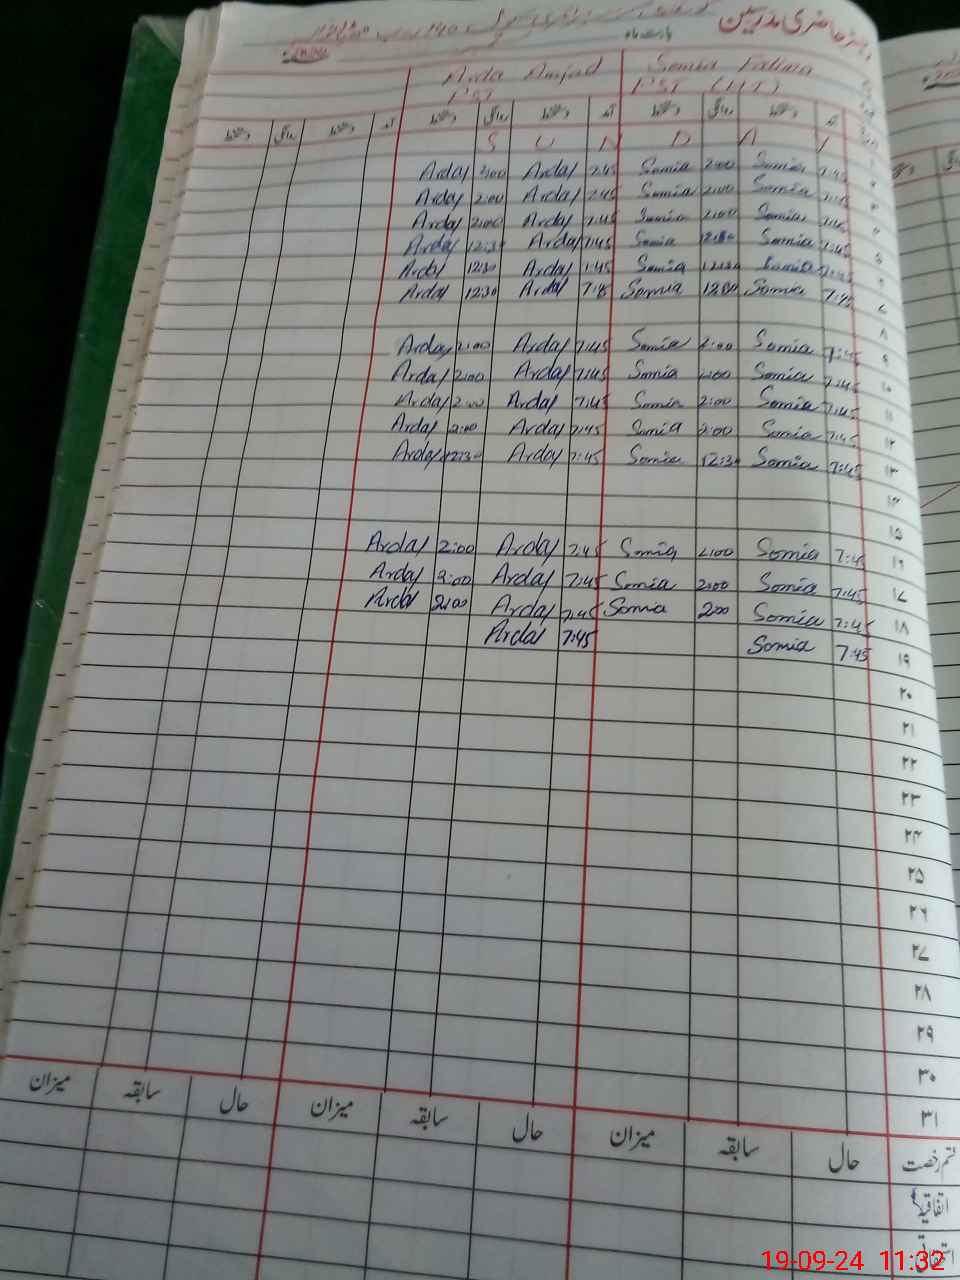 رجسٹر حاضری مدرسین
بابت ماہ
Somia Fatima
Arda Amjad
PST (HT)
PST
آمد دستخط روانگی دستخط آمد دستخط روانگی دستخط آمد دستخط روانگی دستخط
S U N D A Y
Arday 2:00 Arday 7:45 Somia 2:00 Somia 7:45
Arday 2:00 Arday 7:45 Somia 2:00 Somia 7:45
Arday 2:00 Arday 7:45 Somia 2:00 Somia 7:45
Arday 12:30 Arday 7:45 Somia 12:30 Somia 7:45
Arday 12:30 Arday 7:45 Somia 12:30 Somia 7:45
Arday 12:30 Arday 7:45 Somia 12:00 Somia 7:45
۷
۸
Arday 2:00 Arday 7:45 Somia 2:00 Somia 7:45 ۹
Arday 2:00 Arday 7:45 Somia 2:00 Somia 7:45 ۱۰
Arday 2:00 Arday 7:45 Somia 2:00 Somia 7:45 ۱۱
Arday 2:00 Arday 7:45 Somia 2:00 Somia 7:45 ۱۲
Arday 12:30 Arday 7:45 Somia 12:30 Somia 7:45 ۱۳
۱۴
۱۵
Arday 2:00 Arday 7:45 Somia 2:00 Somia 7:45 ۱۶
Arday 2:00 Arday 7:45 Somia 2:00 Somia 7:45 ۱۷
Arday 2:00 Arday 7:45 Somia 2:00 Somia 7:45 ۱۸
Arday 7:45 Somia 7:45 ۱۹
۲۰
۲۱
۲۲
۲۳
۲۴
۲۵
۲۶
۲۷
۲۸
۲۹
۳۰
۳۱
قسم رخصت حال سابقہ میزان حال سابقہ میزان حال سابقہ میزان
اتفاقیہ
استحقاقی
19-09-24 11:32